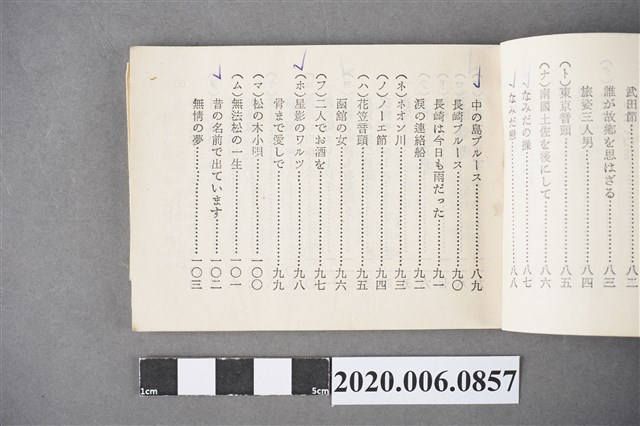 武田節……………八二
誰が故郷を思はざる……八三
旅姿三人男……………八四
(ト)東京音頭……………八五
(ナ)南國土佐を後にして……八六
なみだの操……………八七
なみだ恋……………八八
中の島ブルース……………八九
長崎ブルース……………九〇
長崎は今日も雨だった……九一
涙の連絡船……………九二
(ネ)ネオン川……………九三
(ノ)ノーエ節……………九四
(ハ)花笠音頭……………九五
函館の女……………九六
(フ)二人でお酒を……………九七
(ホ)星影のワルツ……………九八
骨まで愛して……………九九
(マ)松の木小唄……………一〇〇
(ム)無法松の一生……………一〇一
昔の名前で出ています……一〇二
無情の夢……………一〇三
1cm 5cm
2020.006.0857